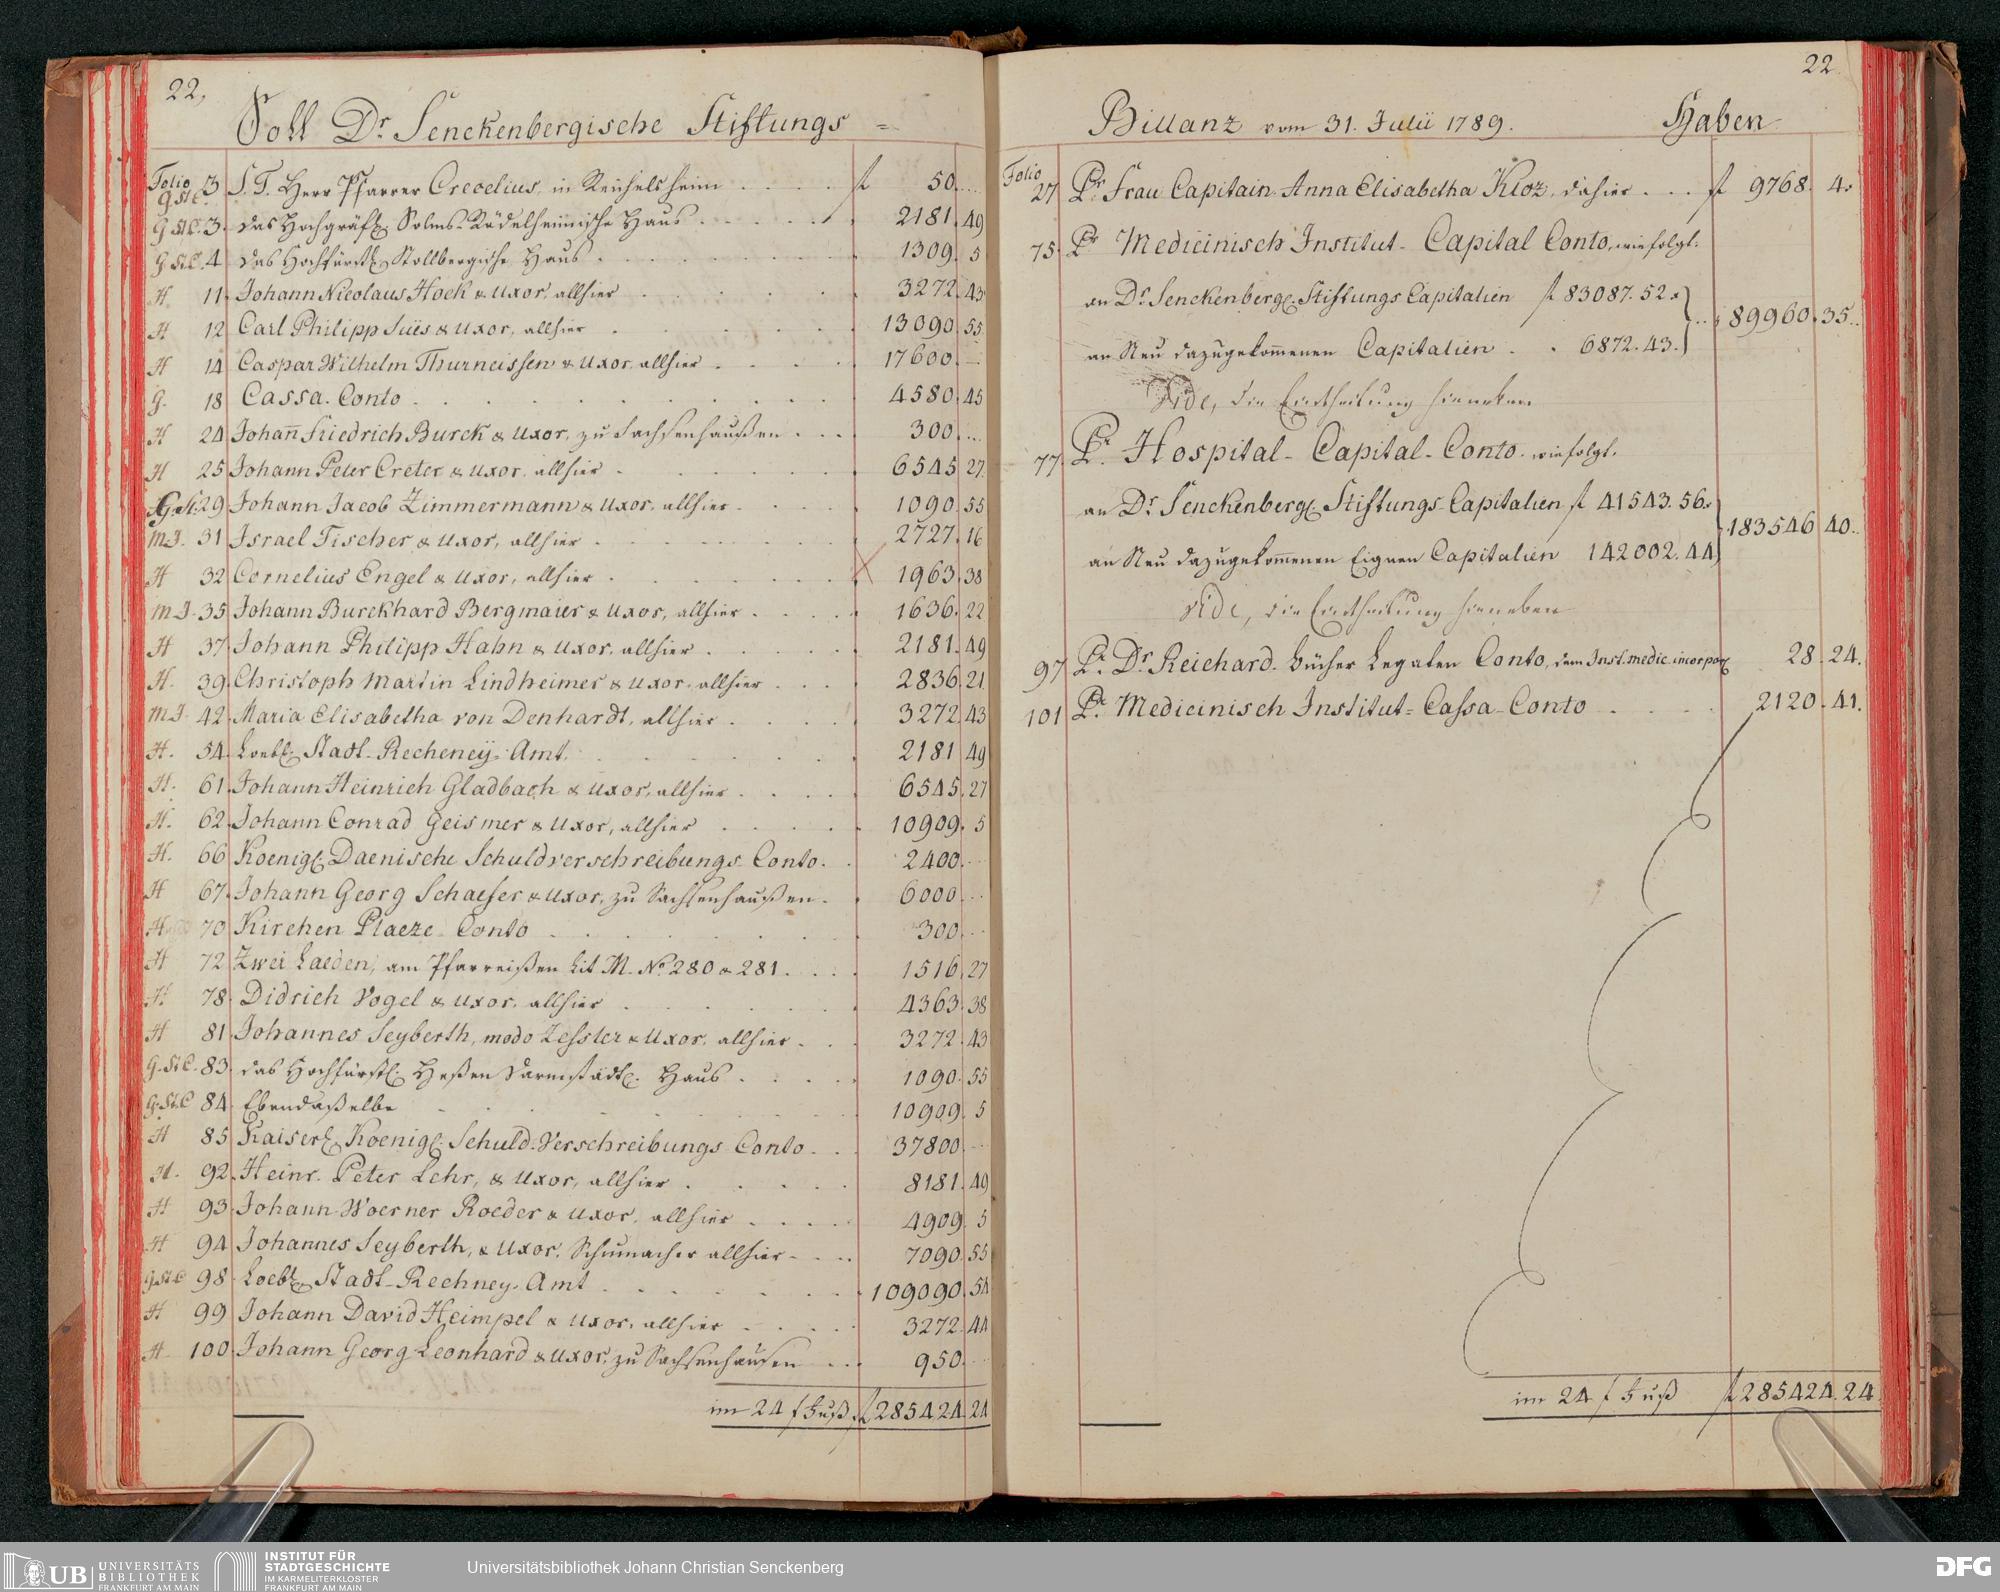 22,
Soll Dr. Senckenbergische Stiftungs =
Folio
G.St.C. 3 S. T. Herr Pfarrer Crecelius, in Reichelsheim . . . . f 50. ...
G.St.C. 3. das Hochgräfl. Solms-Rödelheimische Haus . . . . . 2181. 49
G.St.C. 4 das Hochfürstl. Stollbergische Haus . . . . . 1309. 5
H. 11. Johann Nicolaus Hoek & Uxor, allhier . . . . . 3272. 43
H 12 Carl Philipp Süës & Uxor, allhier . . . . . 13090. 55
H 14 Caspar Wilhelm Thurneissen & Uxor, allhier . . . . 17600. —
G. 18 Cassa. Conto . . . . . . . 4580. 45
H 24 Johañ Friedrich Burck & Uxor, zu Sachsenhaußen . . . 300. ...
H 25 Johann Peter Creter & Uxor, allhier . . . . . 6545. 27.
G.St. 29 Johann Jacob Zimmermann & Uxor, allhier . . . . 1090. 55
M.I. 31 Israel Tischer & Uxor, allhier . . . . . . 2727. 16
H 32 Cornelius Engel & Uxor, allhier . . . . . . 1963. 38
M.I. 35 Johann Burckhard Bergmaier & Uxor, allhier . . . . 1636. 22
H 37. Johann Philipp Hahn & Uxor, allhier . . . . . 2181. 49
H. 39. Christoph Martin Lindheimer & Uxor, allhier . . . 2836. 21
M.I. 42. Maria Elisabetha von Denhardt, allhier . . . . 3272. 43
H. 54. Loebl. Stadt-Recheneÿ-Amt. . . . . . . 2181 49
H. 61. Johann Heinrich Gladbach & Uxor, allhier . . . . 6545. 27
H. 62. Johann Conrad Geismer & Uxor, allhier . . . . 10909. 5
H. 66 Koenigl. Daenische Schuldverschreibungs Conto. . 2400. ...
H 67. Johann Georg Schaefer & Uxor, zu Sachsenhaußen. . 6000. ...
H 70 Kirchen Plaeze Conto . . . . . . 300. ...
H 72 Zwei Laeden, am Pfarreißen Lit M. No. 280 & 281. . . . 1516. 27
H 78. Didrich Vogel & Uxor, allhier . . . . . . 4363. 38
H 81 Johannes Seyberth, modo Zessler & Uxor, allhier . . 3272. 43
G.St.C. 83. das Hochfürstl. Heßen Darmstädtl. Haus . . . . 1090. 55
G.St.C 84 Ebendaßelbe . . . . . . . 10909. 5
H 85 Kaiserl. Koenigl. Schuld-Verschreibungs Conto . . 37800. ...
H. 92. Heinr. Peter Lehr, & Uxor, allhier . . . . . 8181. 49
H 93 Johann Woerner Roeder & Uxor, allhier . . . . 4909. 5
H 94 Johannes Seyberth, & Uxor, Schumacher allhier . . . 7090. 55
G.St.C 98 Loebl. Stadt-Rechney-Amt . . . . . . . 109090. 54
H 99 Johann David Heimpel & Uxor, allhier . . . . 3272. 44
H 100 Johann Georg Leonhard & Uxor, zu Sachsenhausen . . . 950. ...
im 24 f Fuß. f 285424. 24
22
Billanz vom 31. Julii 1789. Haben
Folio
27 Pr. Frau Capitain Anna Elisabetha Kloz, dahier . . . f 9768. 4.
75. Pr. Medicinisch Institut- Capital Conto, wie folgt.
an Dr. Senckenbergl. Stiftungs Capitalien f 83087. 52.
89960. 35.
an Neu dazugekom̄enen Capitalien . . 6872. 43.
Vide, die Eintheilung hieneben
77. Pr. Hospital- Capital- Conto. wie folgt.
an Dr. Senckenbergl. Stiftungs-Capitalien f 41543. 56.
183546 40.
an Neu dazugekom̄enen Eignen Capitalien 142002. 44
vide, die Eintheilung hieneben
97 Pr. Dr. Reichard. Bücher Legaten Conto, dem Inst. medic. incorpor. 28. 24.
101 Pr. Medicinisch Institut-Cassa-Conto . . . 2120. 41.
im 24 f Fuß f 285424. 24.
UB UNIVERSITÄTS BIBLIOTHEK FRANKFURT AM MAIN
INSTITUT FÜR STADTGESCHICHTE IM KARMELITERKLOSTER FRANKFURT AM MAIN
Universitätsbibliothek Johann Christian Senckenberg
DFG